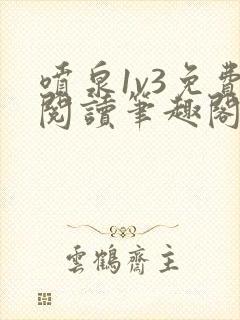 噴泉1v3免費
閱讀筆趣閣
雲鶴齋主